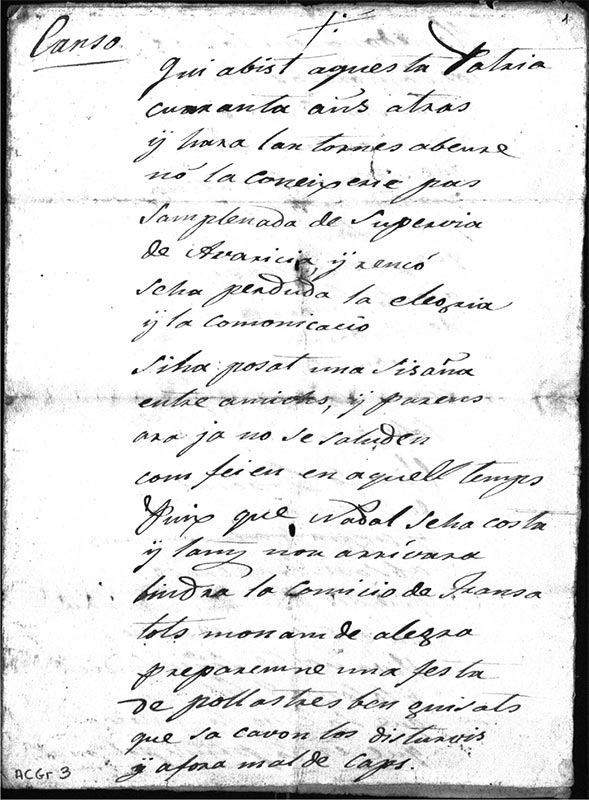 Canso
1
Qui abist aquesta Patria
curanta añs atras
ÿ hara lan tornes abeure
no la coneixerie pas
Samplenada de Supervia
de Avaricia, ÿ rencó
Scha perduda la elegria
ÿ la comonicacio
Siha posat una Sisaña
entre amichs, ÿ parens
ara ja no se saluden
com feien en aquell temps
Puix que Nadal Scha costa
ÿ lany nou arrivara
bindra la comicio de Fransa
tots monam de alegra
preparemne una festa
de pollastres ben guisats
que sa cavon los disturvis
ÿ afora mal de caps.
ACGr 3